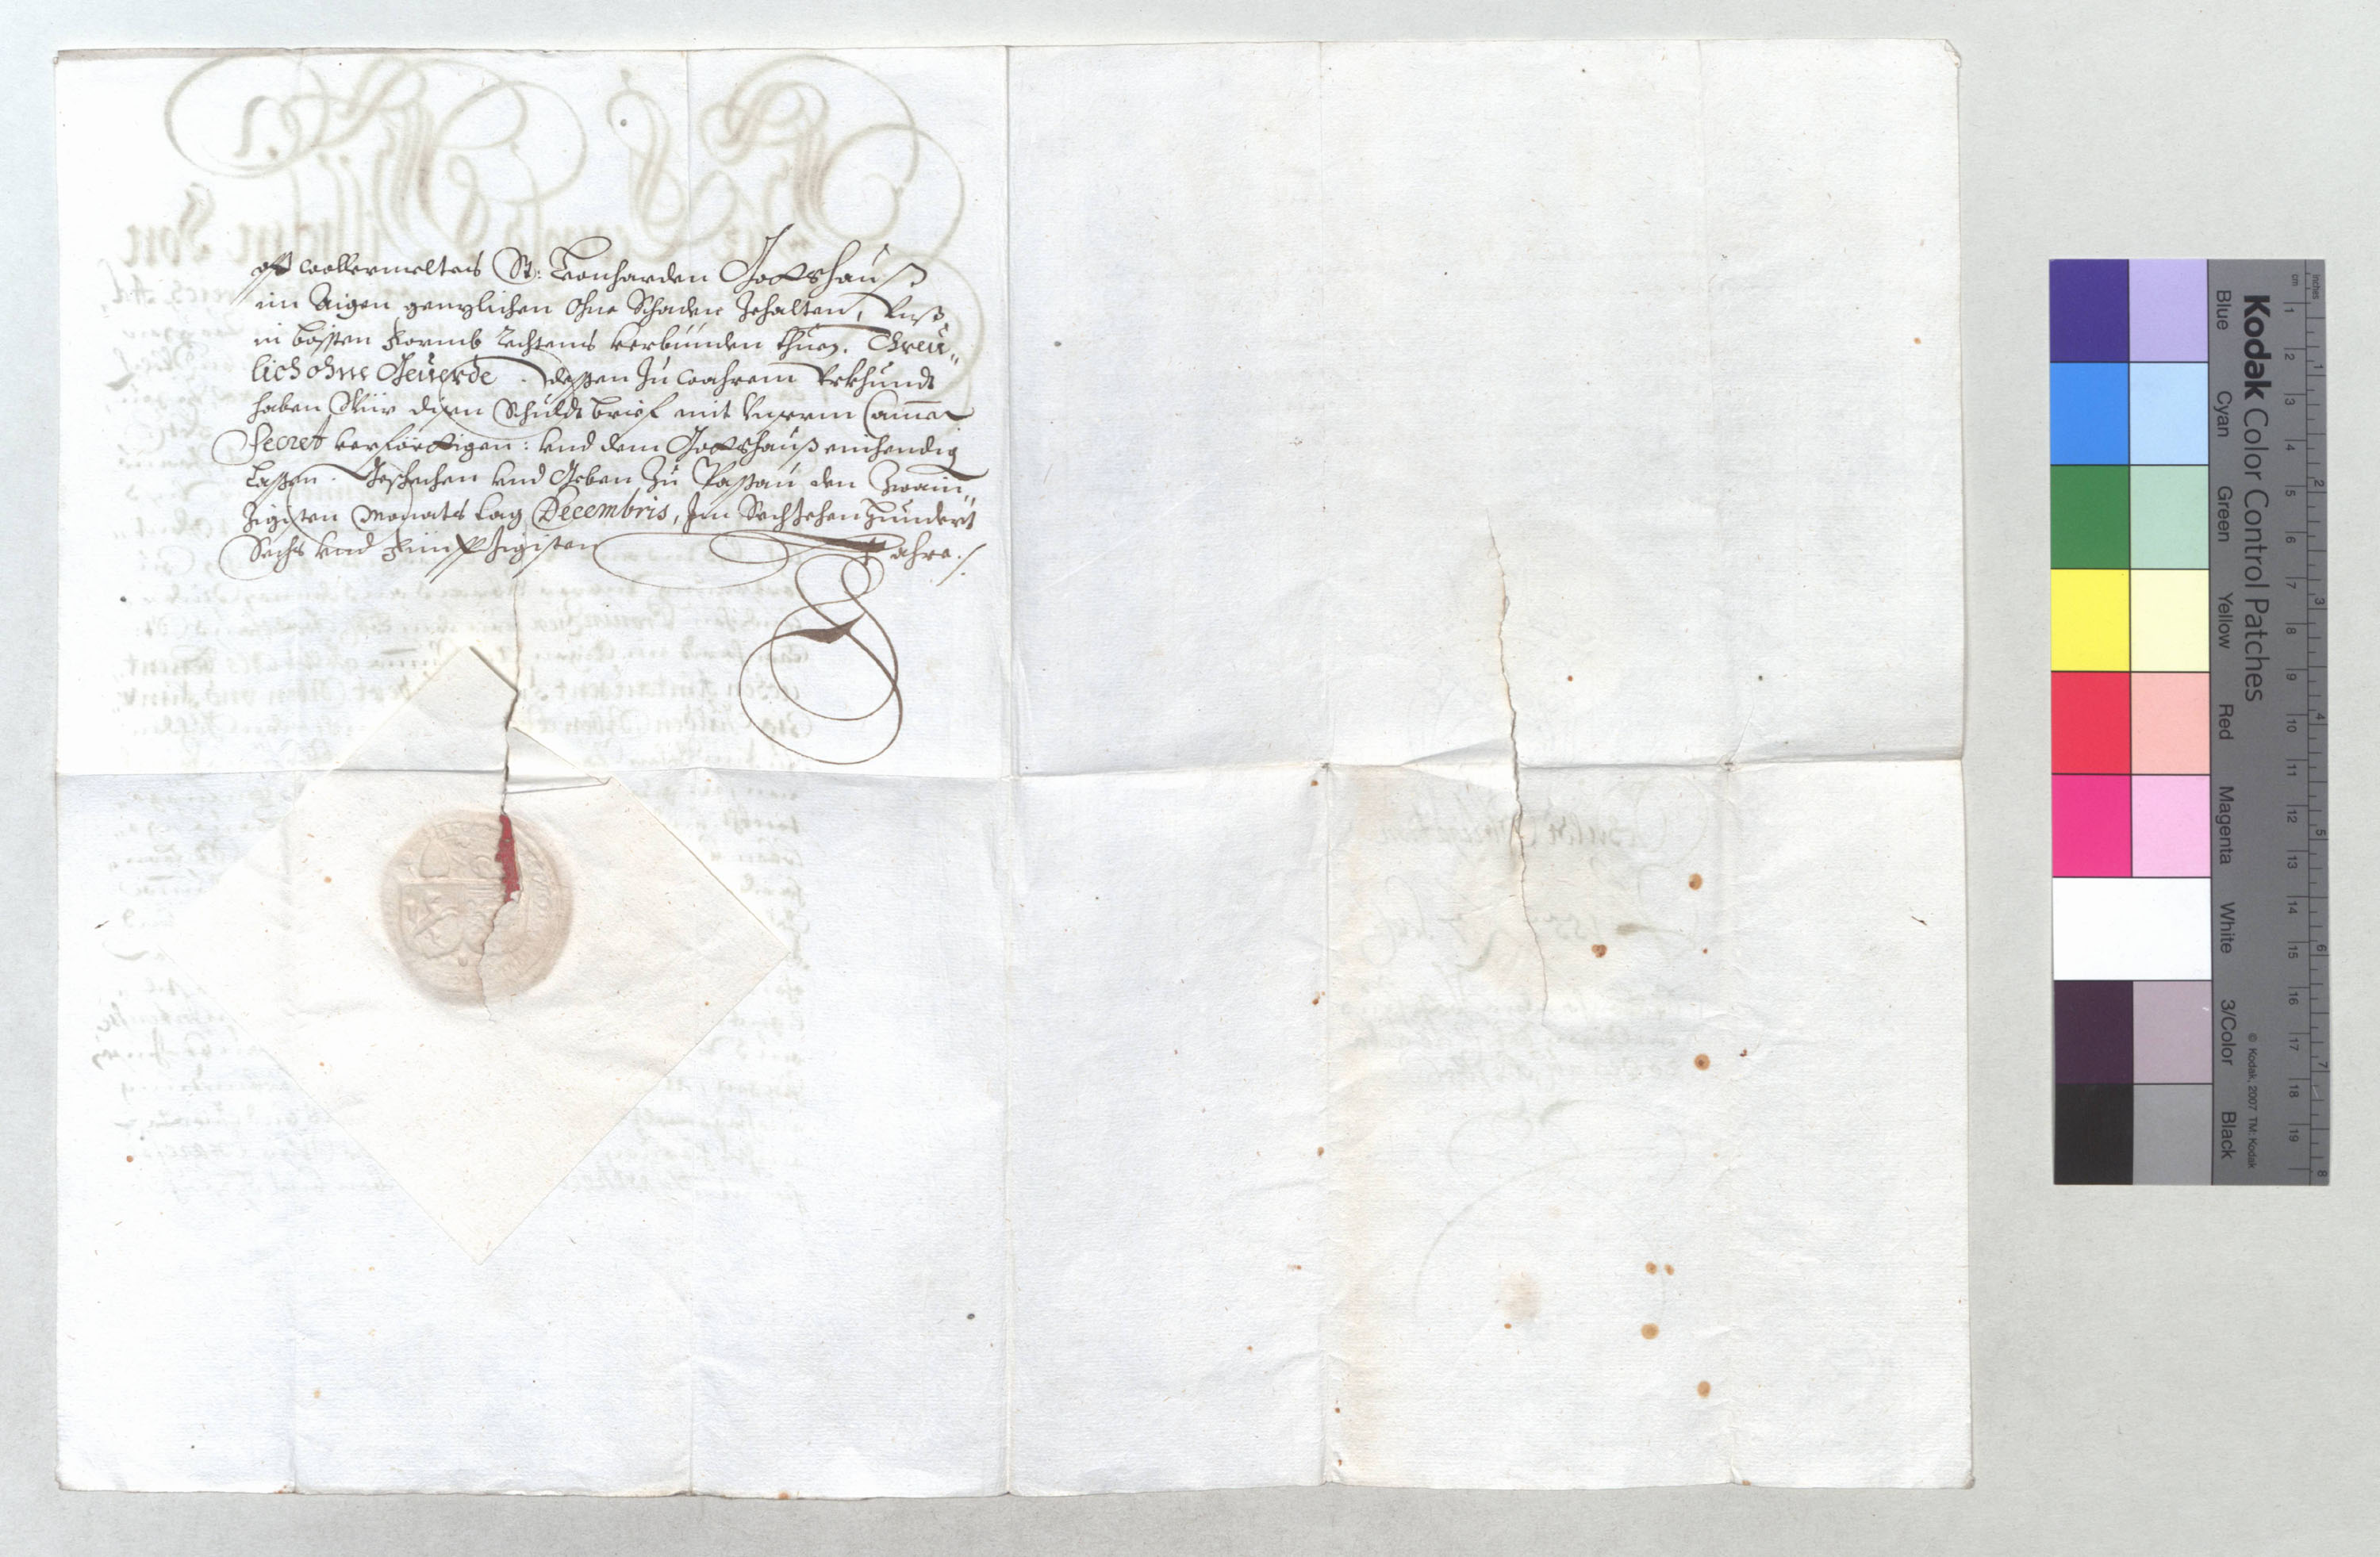 oft wollermeltes St: Leonharden Gottshauß
im Aigen genzlichen ohne Schaden zehalten, Unß
in bössten Formb Rechtens verbünden thuen. Threü„
lich ohne Geuerde. dessen zu wahrem Urkhundt
haben Wür disen Schuldtbrief mit Unserm Camer
Secret verförttigen: und dem Gottshauß einhendig
lassen. Geschehen und Geben zu Passau den Zwain„
zigisten Monats tag Decembris, Im Sechzehenhundert
Sechs und Fünffzigisten Jahre./.
Kodak Color Control Patches
Blue Cyan Green Yellow Red Magenta White 3/Color Black
© Kodak, 2007 TM: Kodak
inches
cm
1 2 3 4 5 6 7 8
1 2 3 4 5 6 7 8 9 10 11 12 13 14 15 16 17 18 19